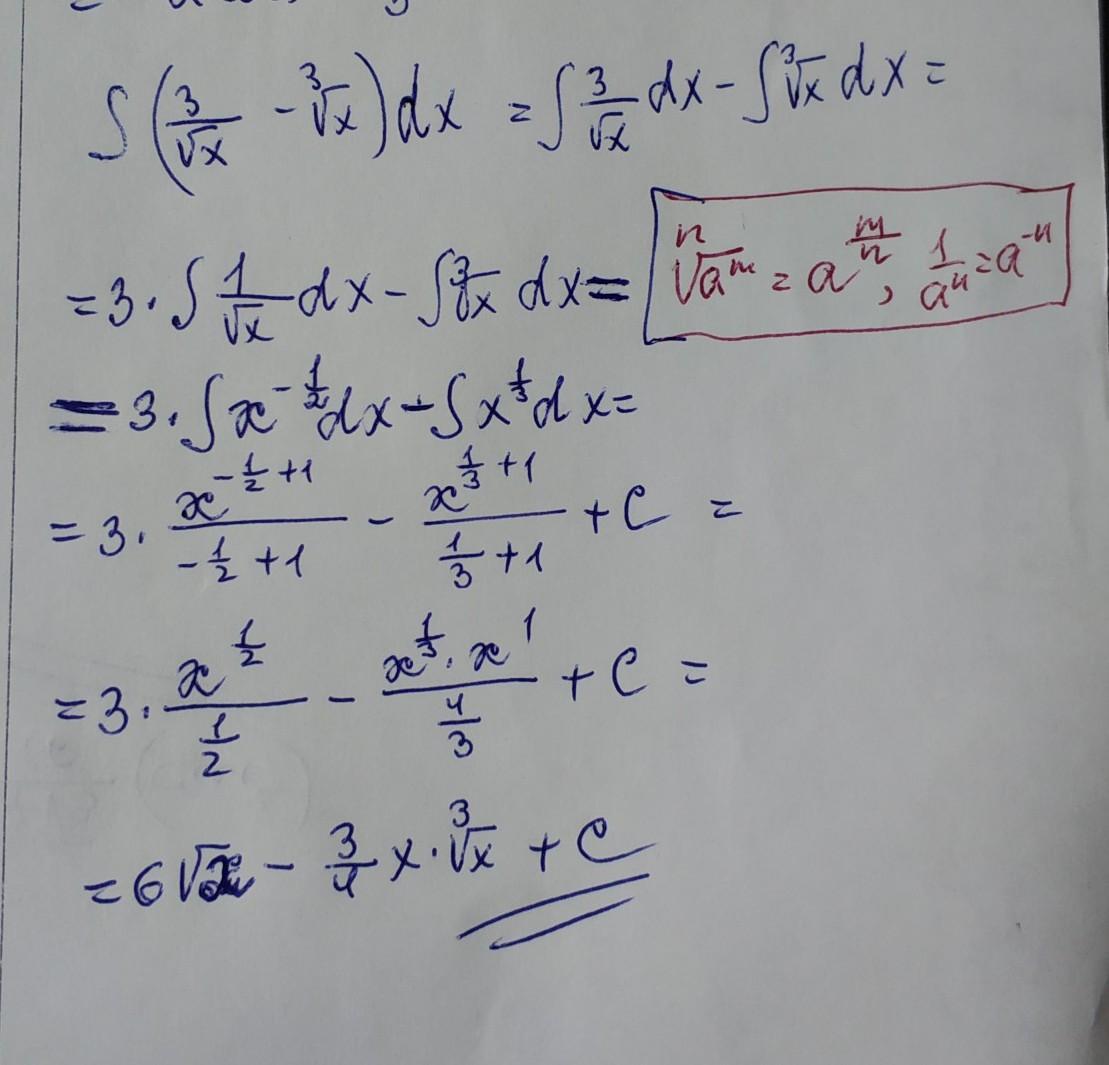 ∫(3/√x - ∛x)dx = ∫3/√x dx - ∫∛x dx =
= 3·∫1/√x dx - ∫∛x dx =
ⁿ√aᵐ = a^(m/n), 1/aⁿ = a⁻ⁿ
= 3·∫x^(-1/2)dx - ∫x^(1/3)dx =
= 3·x^(-1/2+1)/(-1/2+1) - x^(1/3+1)/(1/3+1) + C =
= 3·x^(1/2)/(1/2) - x^(1/3)·x^1/(4/3) + C =
= 6√x - 3/4 x·∛x + C